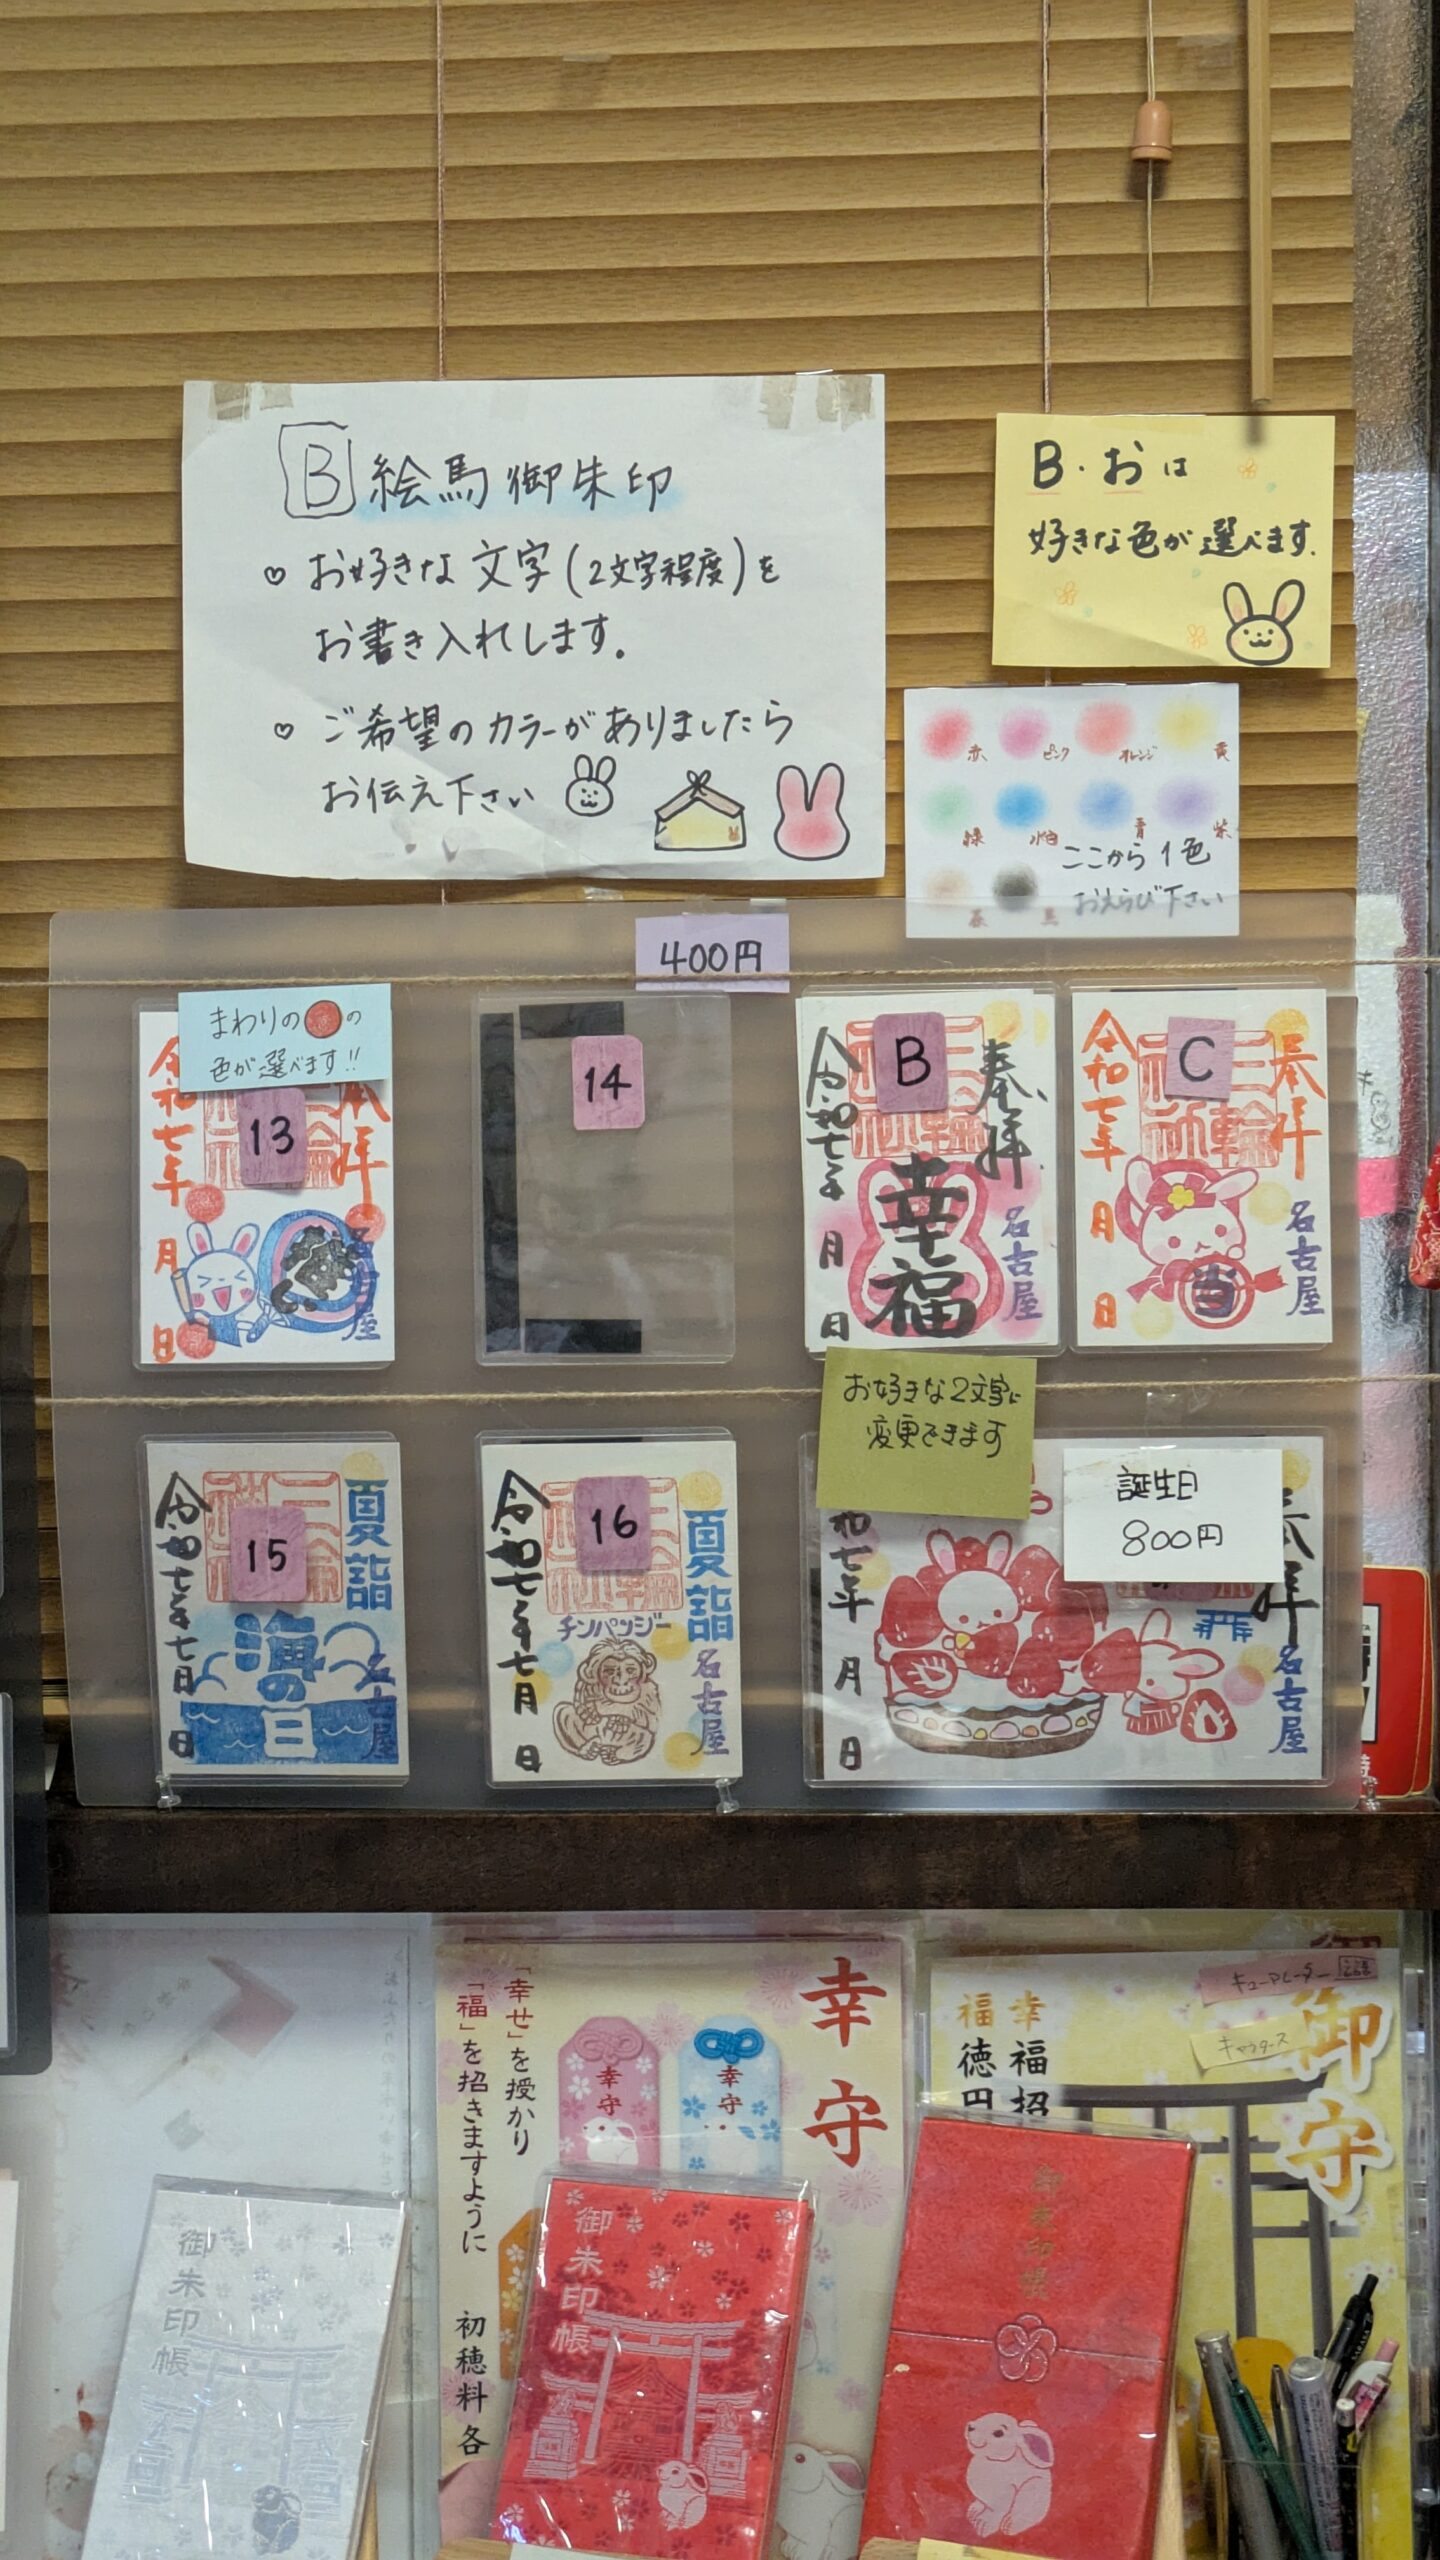 B 絵馬御朱印
♡ お好きな文字(2文字程度)を
お書き入れします。
♡ ご希望のカラーがありましたら
お伝え下さい
B・おは
好きな色が選べます.
赤 ピンク オレンジ 黄
緑 水色 青 紫
灰 黒
ここから1色
おえらび下さい
400円
まわりの の
色が選べます!!
13
奉拝
令和七年
月
日
名古屋
14
B
奉拝
幸福
令和七年
月
日
名古屋
C
奉拝
令和七年
月
日
当
名古屋
お好きな2文字に
変更できます
15
夏詣
海の日
令和七年七月
日
名古屋
16
夏詣
チンパンジー
令和七年七月
日
名古屋
誕生日
800円
奉拝
和七年
月
日
名古屋
幸守
「幸せ」を授かり
「福」を招きますように
初穂料 各
幸守
幸守
キューアレーター
キャウタース
御守
幸福招
福徳円
御朱印帳
御朱印帳
御朱印帳